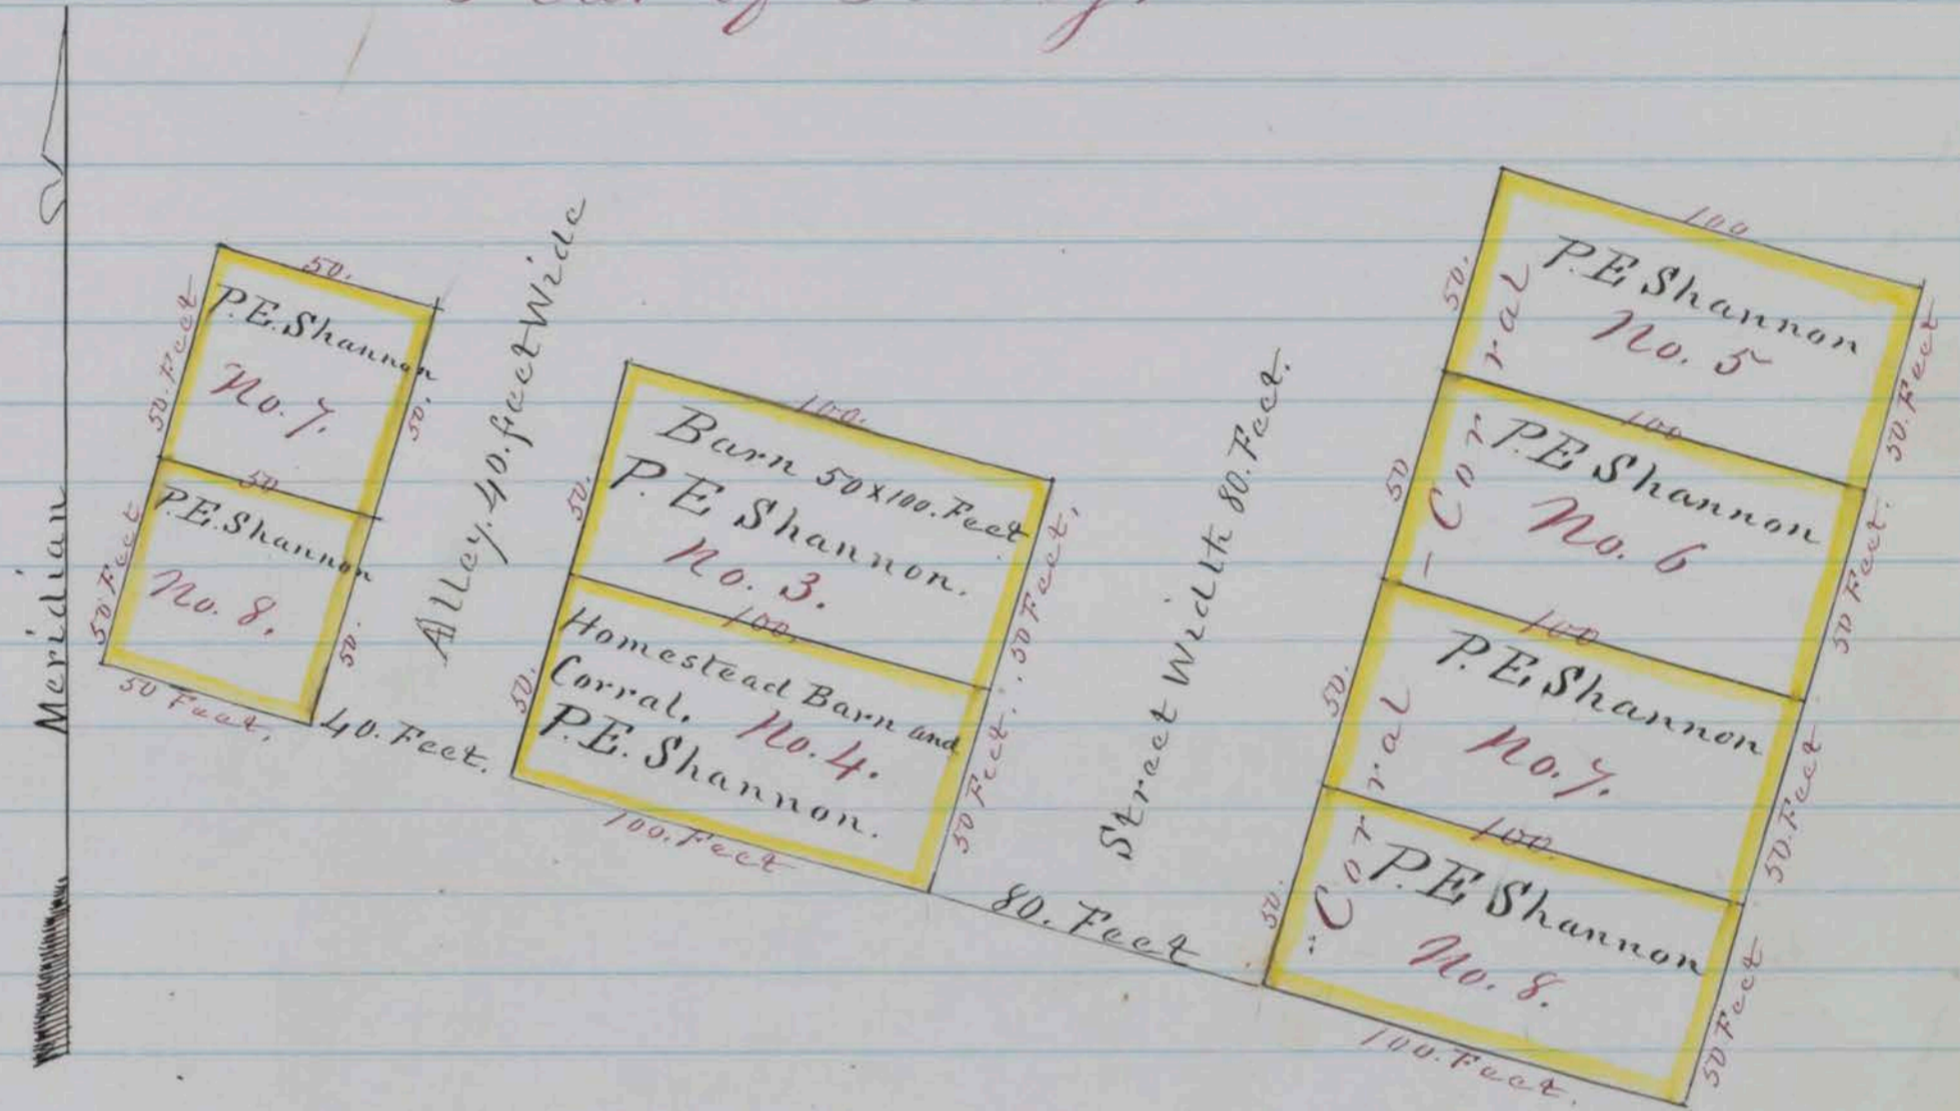 Meridian
50.
50. Feet
P.E. Shannon
No. 7.
50.
50
50 Feet
P.E. Shannon
No. 8.
50.
50 Feet.
40. Feet.
Alley. 40. feet Wide
100.
50.
Barn 50x100. Feet
P. E Shannon.
No. 3.
50 Feet.
100.
50.
Homestead Barn and
Corral. No. 4.
P. E. Shannon.
50 Feet.
100. Feet
80. Feet
Street Width 80. Feet.
100
50.
P. E Shannon
No. 5
50. Feet
100
50
P. E Shannon
No. 6
50 Feet.
- Corral
100
50.
P. E, Shannon
No. 7.
50. Feet
100.
50.
P. E Shannon
No. 8.
50 Feet
Corral
100. Feet.